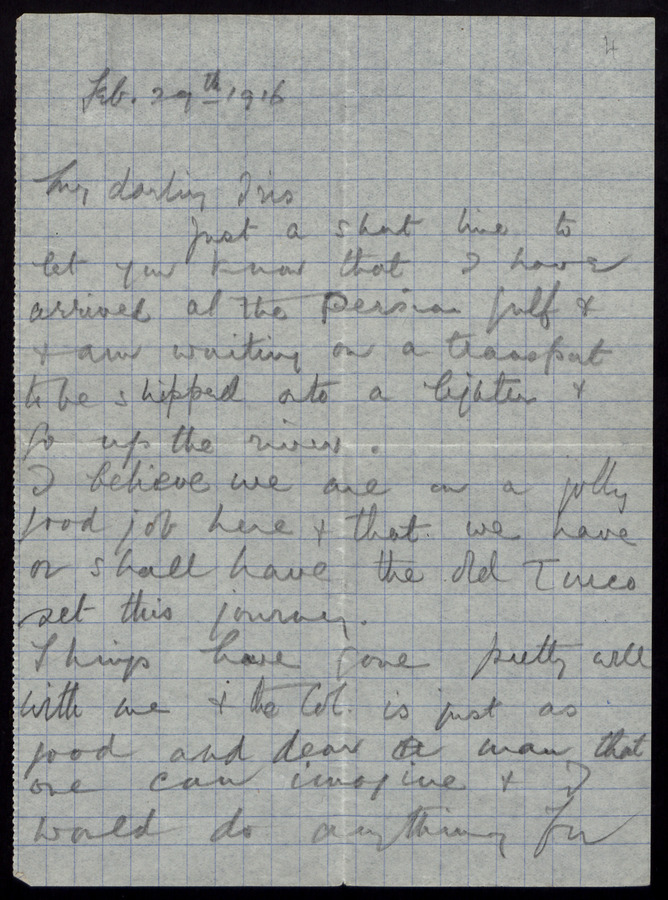 4
Feb. 29th 1916
My darling Iris
Just a short line to
let you know that I have
arrived at the Persian Gulf &
& am waiting on a transport
to be shipped onto a lighter &
go up the river.
I believe we are on a jolly
good job here & that we have
or shall have the old Turco
set this journey.
Things have gone pretty well
with me & the Col. is just as
good and dear a man that
one can imagine & I
would do anything for